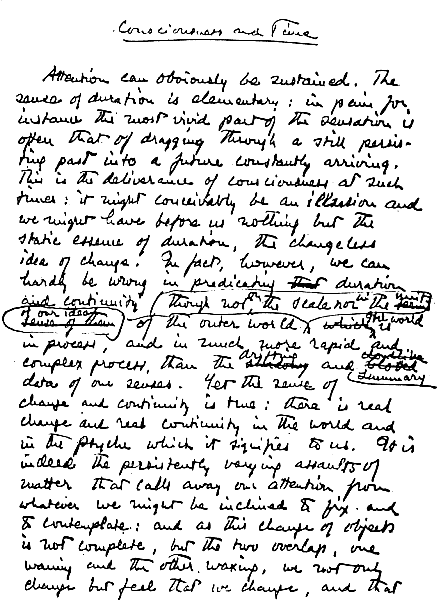 Consciousness and Time
Attention can obviously be sustained. The
sense of duration is elementary: in pain, for
instance the most vivid part of the sensation is
often that of dragging through a still persis-
ting past into a future constantly arriving.
This is the deliverance of consciousness at such
times: it might conceivably be an illusion and
we might have before us nothing but the
static essence of duration, the changeless
idea of change. In fact, however, we can
hardly be wrong in predicating that duration
and continuity though not on the scale nor in the units
of our ideas
sense of them of the outer world, which is the world
in process, and in much more rapid and
complex process, than the drifting and
data of our senses. Yet the sense of summary
change and continuity is true: there is real
change and real continuity in the world and
in the psyche which it signifies to us. It is
indeed the persistently varying assaults of
matter that calls away our attention from
whatever we might be inclined to fix and
to contemplate: and as this change of objects
is not complete, but the two overlap, one
waning and the other waxing, we not only
change but feel that we change, and that